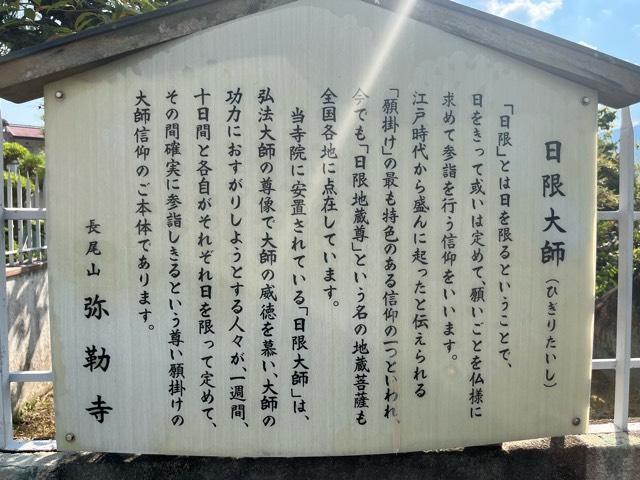 日限大師（ひぎりたいし）
「日限」とは日を限るということで、
日をきって或いは定めて、願いごとを仏様に
求めて参詣を行う信仰をいいます。
江戸時代から盛んに起ったと伝えられる
「願掛け」の最も特色のある信仰の一つといわれ、
今でも「日限地蔵尊」という名の地蔵菩薩も
全国各地に点在しています。
当寺院に安置されている「日限大師」は、
弘法大師の尊像で大師の威徳を慕い、大師の
功力におすがりしようとする人々が、一週間、
十日間と各自がそれぞれ日を限って定めて、
その間確実に参詣しきるという尊い願掛けの
大師信仰のご本体であります。
長尾山 弥勒寺